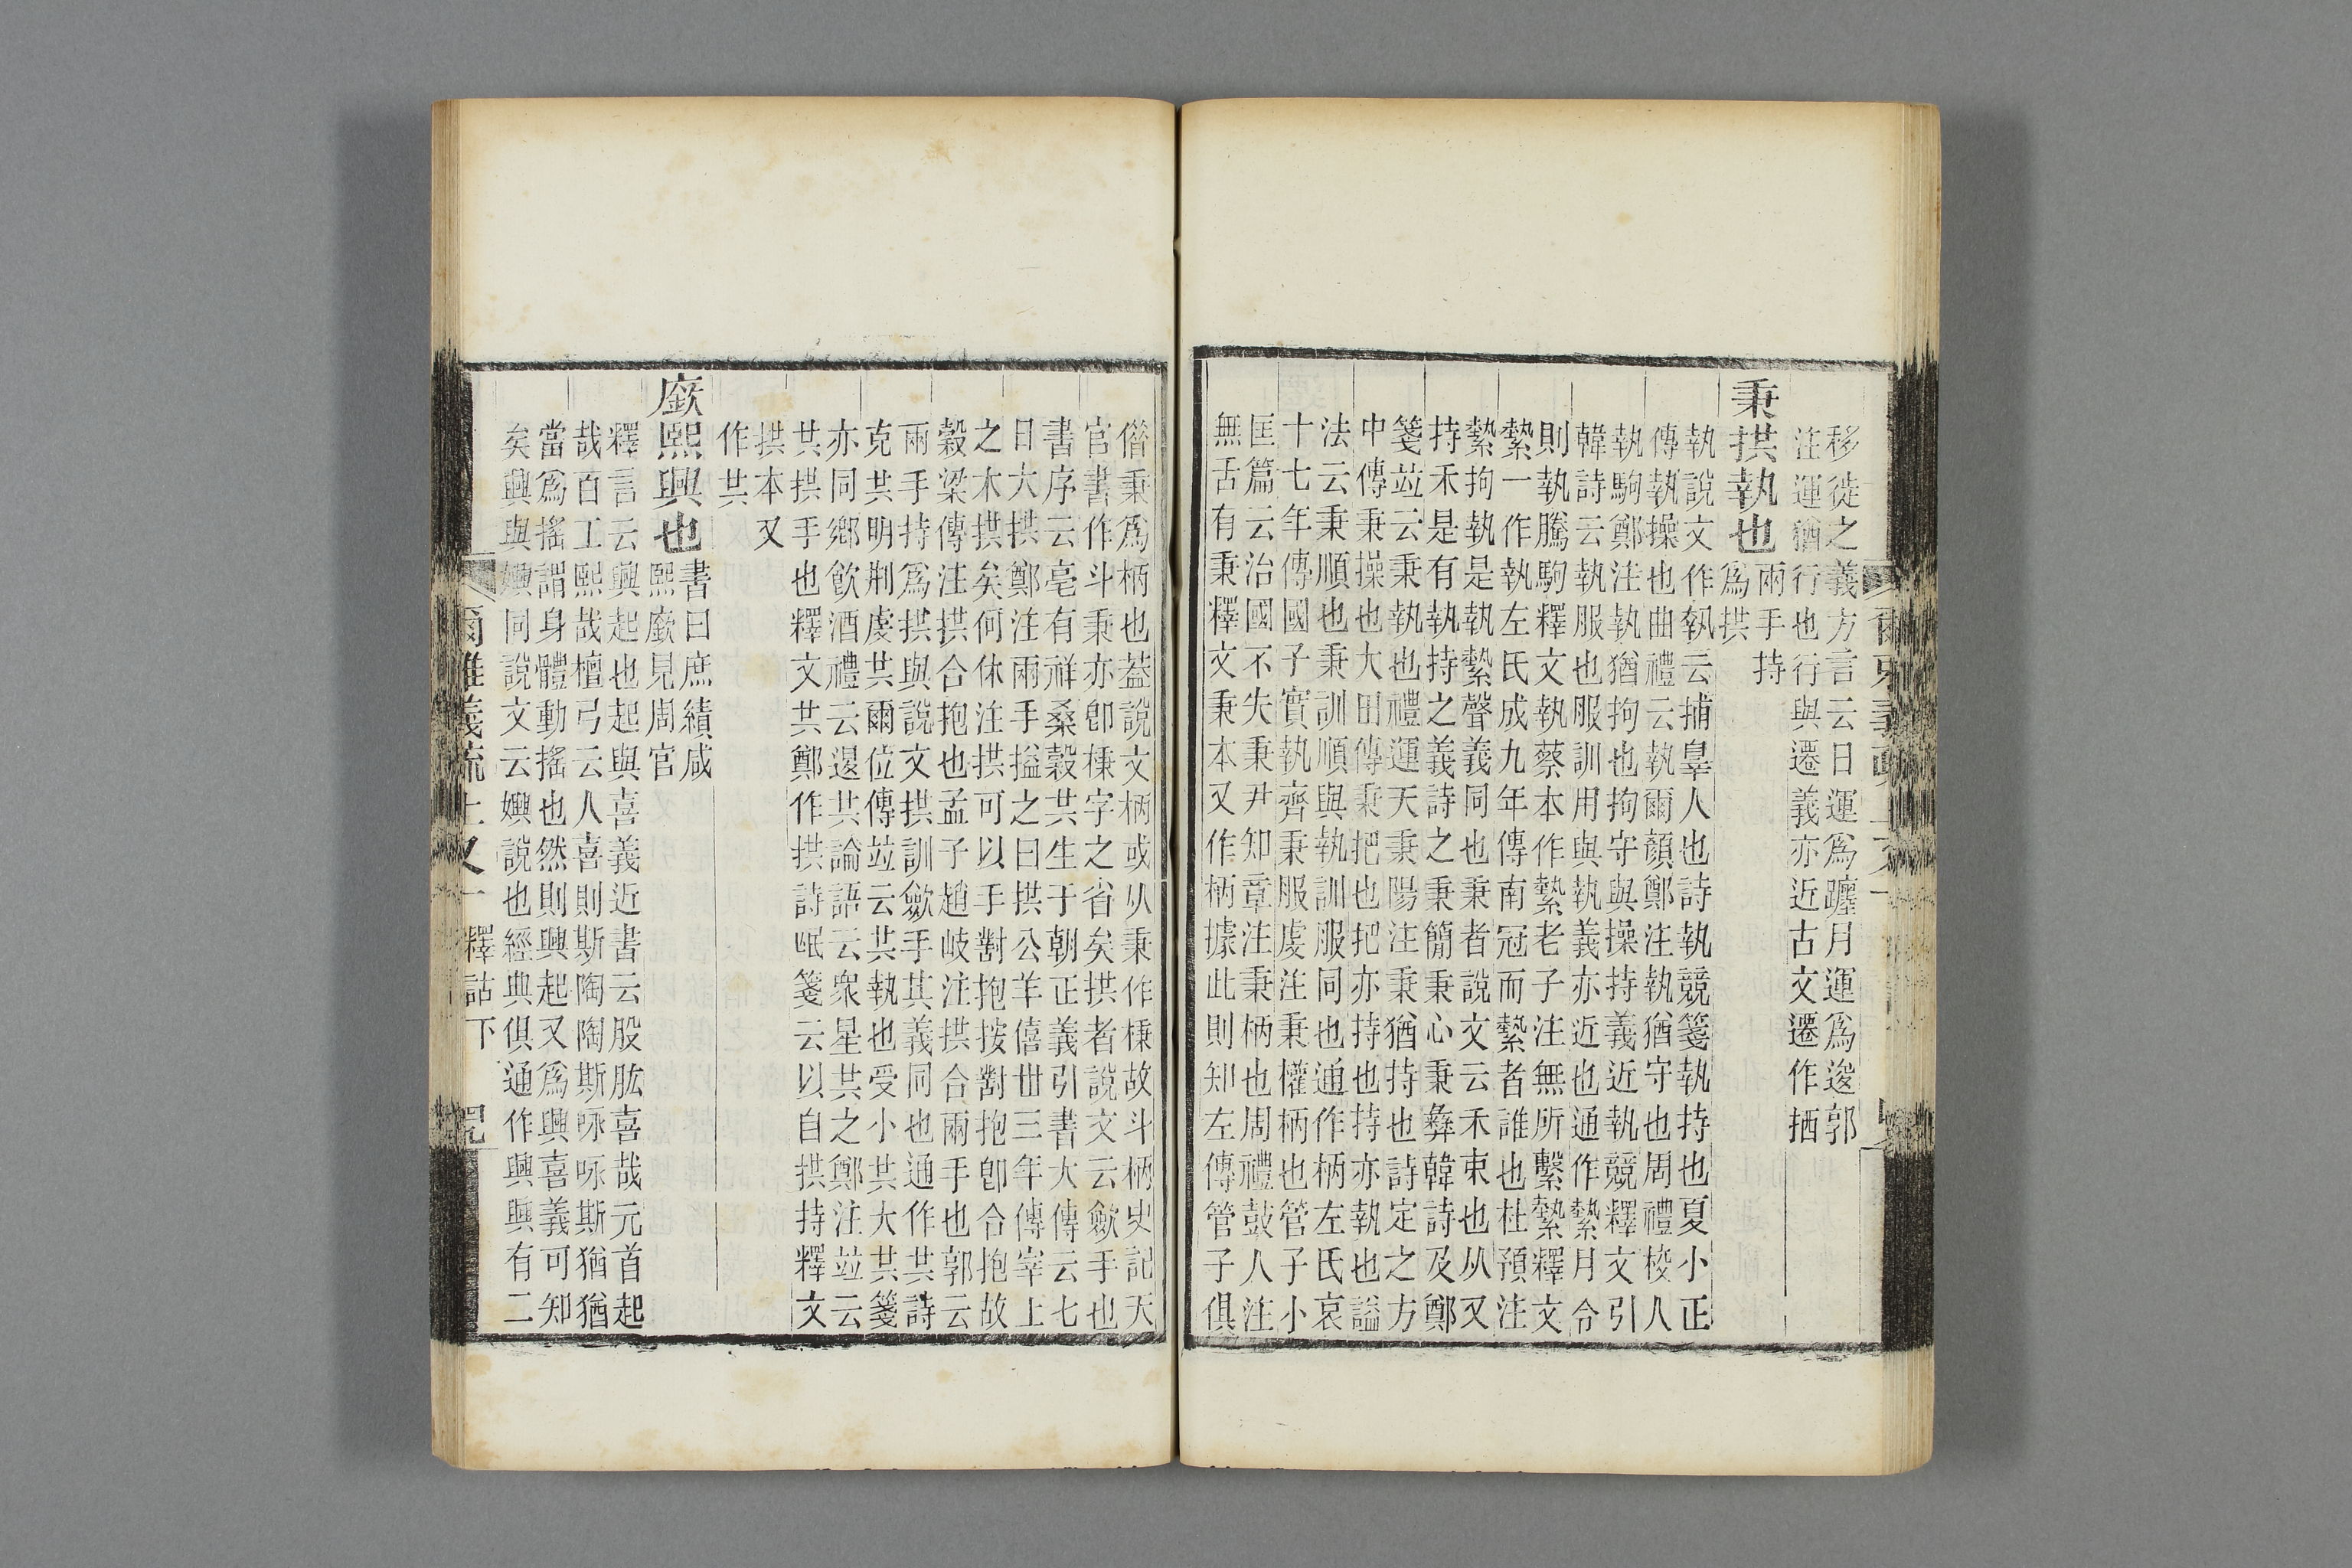 移徙之義方言云日運爲躔月運爲逡郭
注運猶行也行與遷義亦近古文遷作拪
秉拱執也
兩手持
爲拱
執說文作㚔云捕辠人也詩執競箋執持也夏小正
傳執操也曲禮云執爾顏鄭注執猶守也周禮校人
執駒鄭注執猶拘也拘守與操持義近執競釋文引
韓詩云執服也服訓用與執義亦近也通作縶月令
則執騰駒釋文執蔡本作縶老子注無所繫縶釋文
縶一作執左氏成九年傳南冠而縶者誰也杜預注
縶拘執是執縶聲義同也秉者說文云禾束也从又
持禾是有執持之義詩之秉簡秉心秉彝韓詩及鄭
箋竝云秉執也禮運天秉陽注秉猶持也詩定之方
中傳秉操也大田傳秉把也把亦持也持亦執也謚
法云秉順也秉訓順與執訓服同也通作柄左氏哀
十七年傳國子實執齊秉服虔注秉權柄也管子小
匡篇云治國不失秉尹知章注秉柄也周禮鼓人注
無舌有秉釋文秉本又作柄據此則知左傳管子俱
偝秉爲柄也葢說文柄或从秉作棅故斗柄史記天
官書作斗秉亦卽棅字之省矣拱者說文云斂手也
書序云亳有祥桑穀共生于朝正義引書大傳云七
日大拱鄭注兩手搤之曰拱公羊僖卅三年傳宰上
之木拱矣何休注拱可以手對抱按對抱卽合抱故
穀梁傳注拱合抱也孟子趙岐注拱合兩手也郭云
兩手持爲拱與說文拱訓斂手其義同也通作共詩
克共明刑虔共爾位傳竝云共執也受小共大共箋
亦同鄉飮酒禮云退共論語云衆星共之鄭注竝云
共拱手也釋文共鄭作拱詩㟭箋云以自拱持釋文
拱本又
作共
廞熙興也
書曰庶績咸
熙廞見周官
釋言云興起也起與喜義近書云股肱喜哉元首起
哉百工熙哉檀弓云人喜則斯陶陶斯咏咏斯猶猶
當爲搖謂身體動搖也然則興起又爲興喜義可知
矣興與嬹同說文云嬹說也經典俱通作興興有二
爾雅義疏上又一 釋詁下